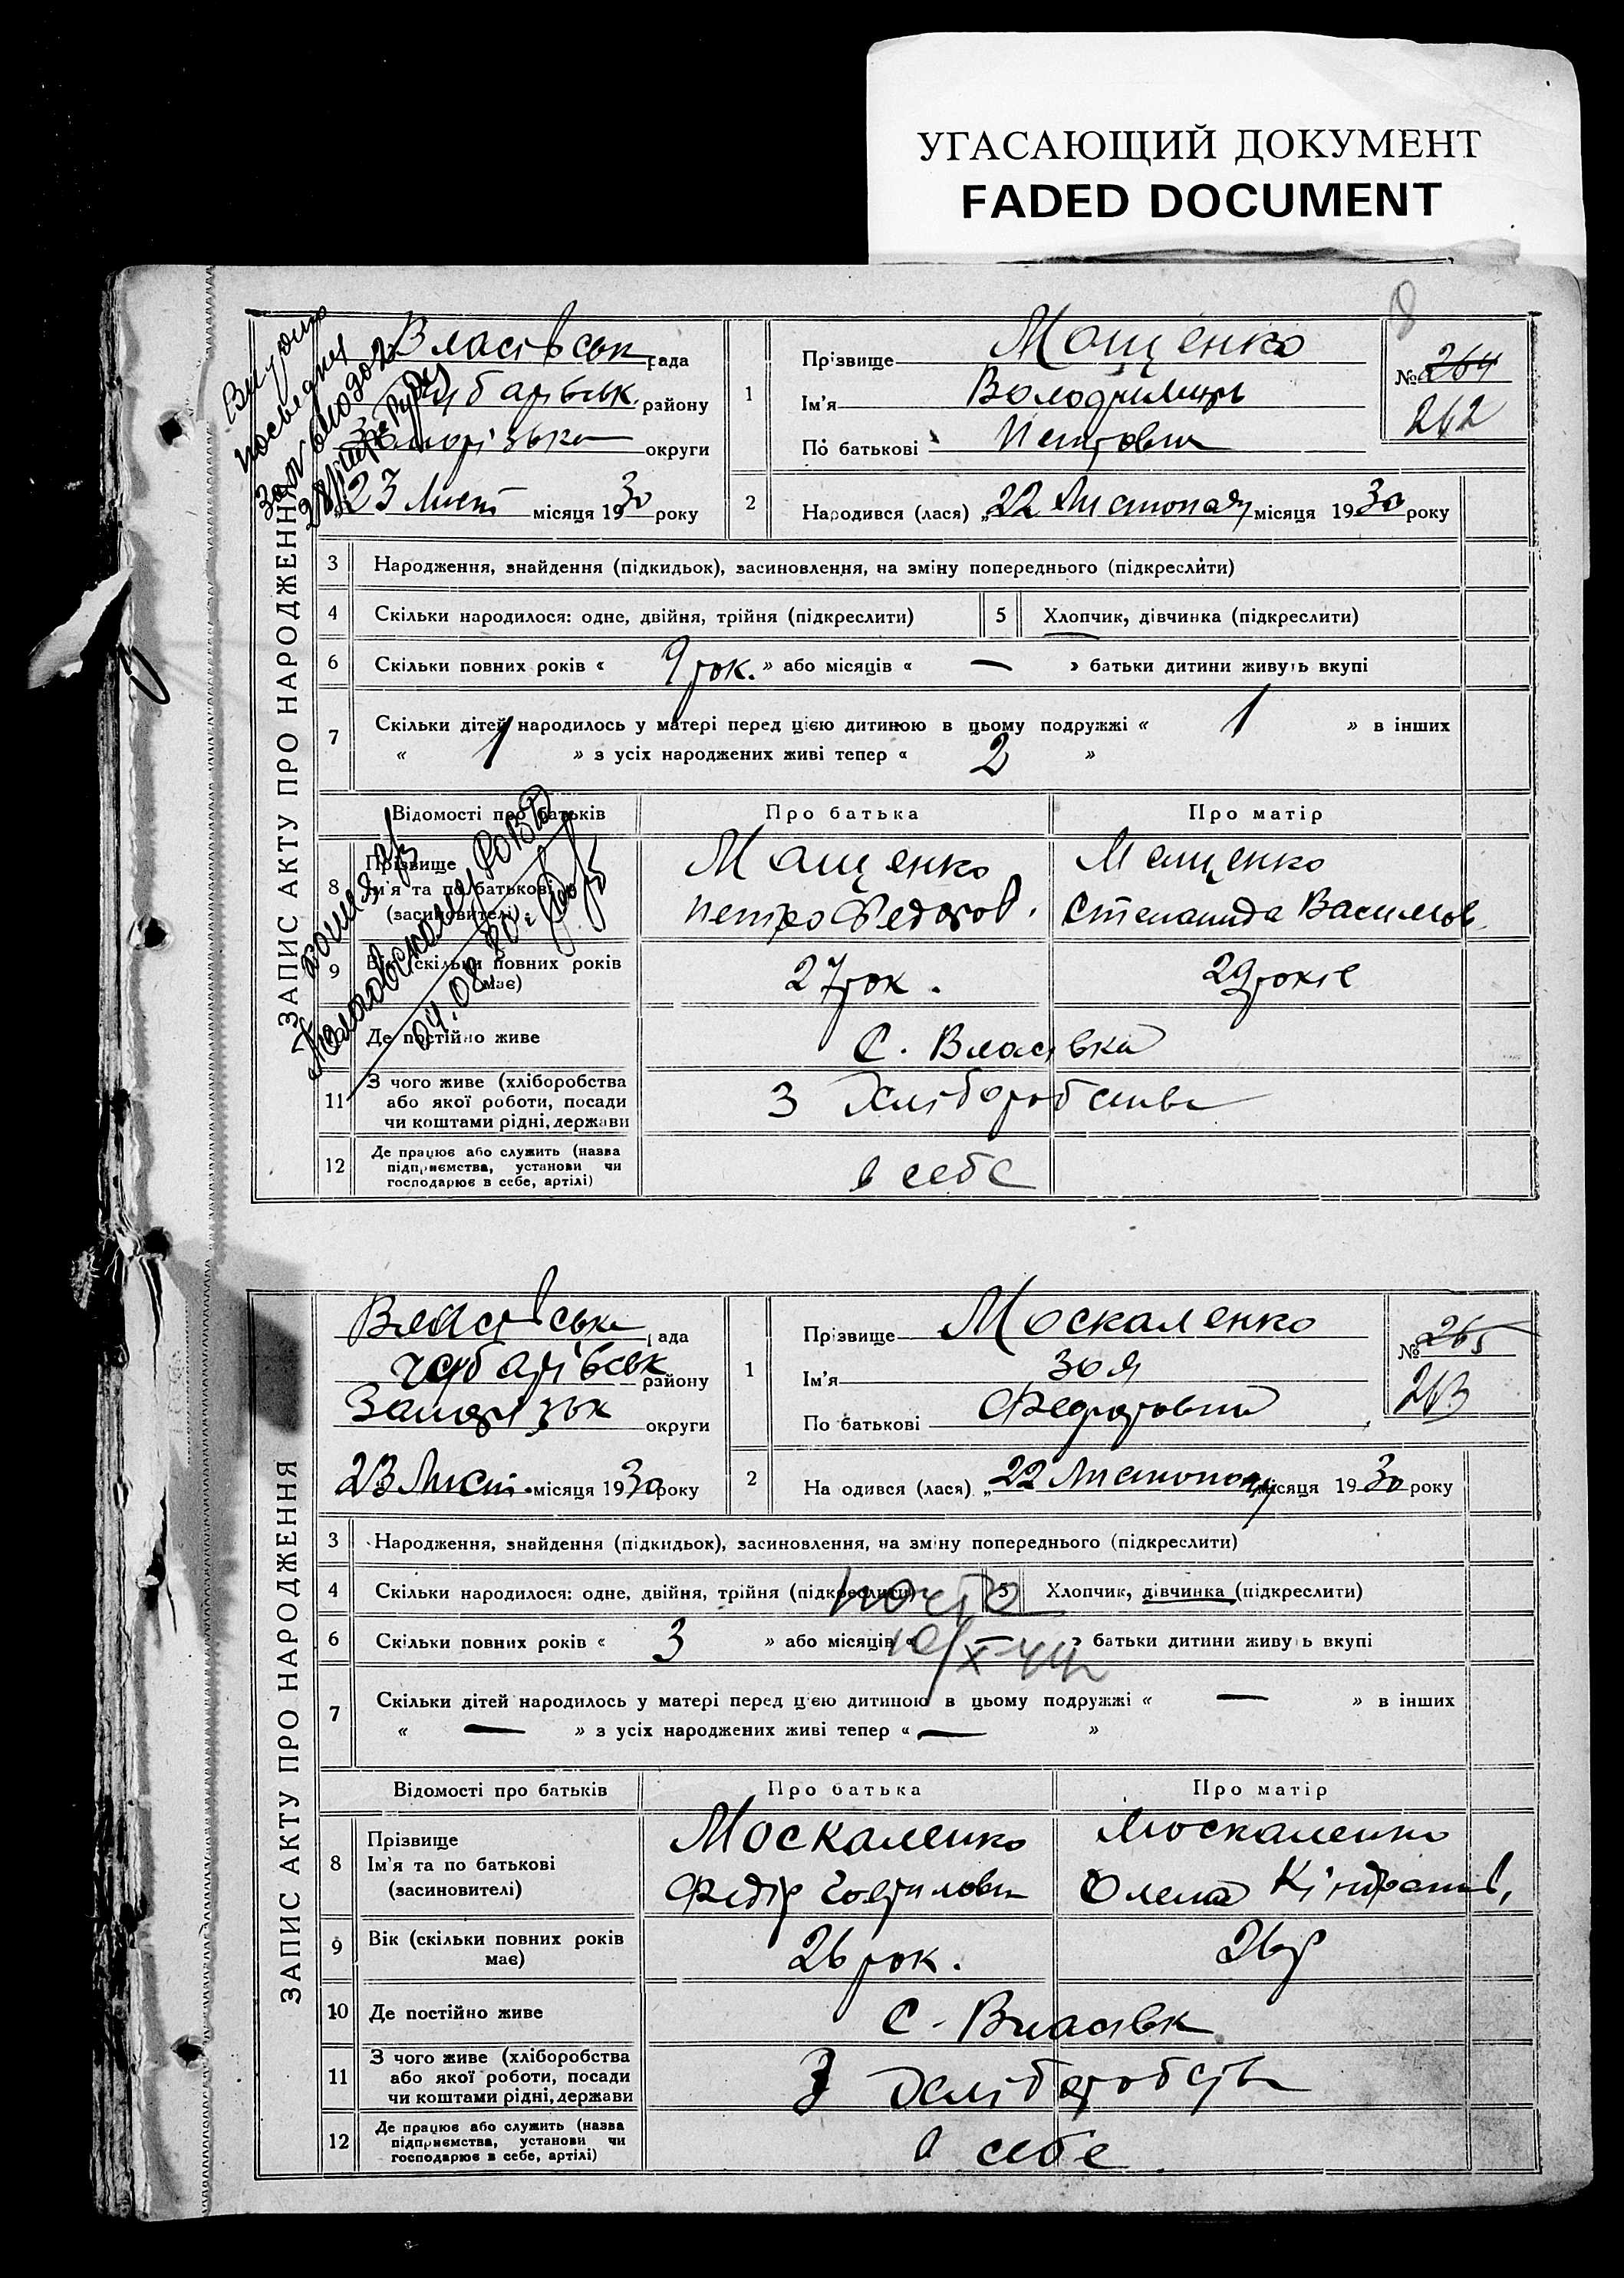 УГАСАЮЩИЙ ДОКУМЕНТ
FADED DOCUMENT
8
ЗАПИС АКТУ ПРО НАРОДЖЕННЯ
Власівськ рада
району
округи
23 Лист місяця 1930 року
1
Прізвище Мощенко
Ім'я Володимир
По батькові Петрович
№ 264
262
2
Народився (лася) „22 Листопада місяця 1930 року
3 Народження, знайдення (підкидьок), засиновлення, на зміну попереднього (підкреслити)
4 Скільки народилося: одне, двійня, трійня (підкреслити) 5 Хлопчик, дівчинка (підкреслити)
6 Скільки повних років « 9 рок. » або місяців « — » батьки дитини живуть вкупі
7 Скільки дітей народилось у матері перед цією дитиною в цьому подружжі « 1 » в інших
« 1 » з усіх народжених живі тепер « 2 »
Відомості про батьків Про батька Про матір
8 Прізвище
Ім'я та по батькові
(засновителі)
Мощенко
Петро Федоров.
Мощенко
Степанида Васильов.
9 Вік (скільки повних років має) 27 рок. 29 років
Де постійно живе С. Власівка
11 З чого живе (хліборобства
або якої роботи, посади
чи коштами рідні, держави
З Хліборобства
12 Де працює або служить (назва
підприємства, установи чи
господарює в себе, артілі)
в себе
04.08.80
ЗАПИС АКТУ ПРО НАРОДЖЕННЯ
Власівська рада
Чубарівськ району
Запорізьк округи
23 Лист. місяця 1930 року
1
Прізвище Москаленко
Ім'я Зоя
По батькові Федоровна
№ 265
263
2
На одився (лася) „22 Листопада місяця 1930 року
3 Народження, знайдення (підкидьок), засиновлення, на зміну попереднього (підкреслити)
4 Скільки народилося: одне, двійня, трійня (підкреслити) 5 Хлопчик, дівчинка (підкреслити)
6 Скільки повних років « 3 » або місяців « — » батьки дитини живуть вкупі
7 Скільки дітей народилось у матері перед цією дитиною в цьому подружжі « — » в інших
« — » з усіх народжених живі тепер « — »
Відомості про батьків Про батька Про матір
8 Прізвище
Ім'я та по батькові
(засиновителі)
Москаленко
Федір Гаврилович
Москаленко
Олена Кіндратів.
9 Вік (скільки повних років має) 26 рок. 26 р
10 Де постійно живе С. Власівк
11 З чого живе (хліборобства
або якої роботи, посади
чи коштами рідні, держави
З Хліборобств
12 Де працює або служить (назва
підприємства, установи чи
господарює в себе, артілі)
в себе